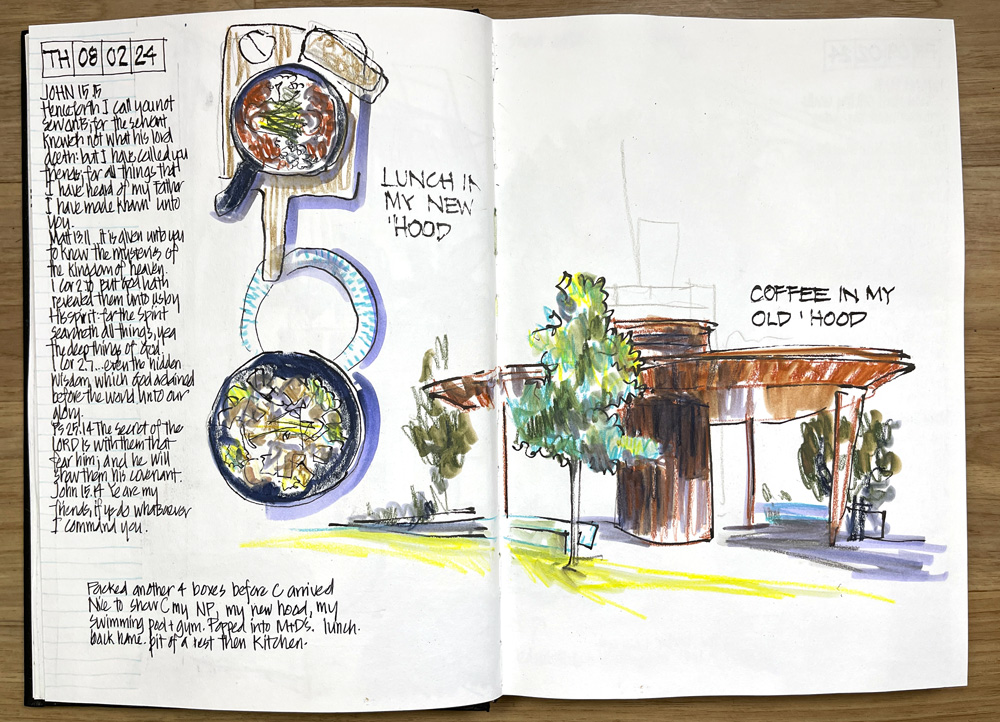 TH 08 02 24
JOHN 15.15
Henceforth I call you not
servants; for the servant
knoweth not what his lord
doeth: but I have called you
friends; for all things that
I have heard of my Father
I have made known unto
you.
Matt 13.11 .. it is given unto you
to know the mysteries of
the kingdom of heaven.
1 Cor 2.10 But God hath
revealed them unto us by
His spirit: for the spirit
searcheth all things, yea
the deep things of God.
1 Cor 2.7... even the hidden
wisdom, which God ordained
before the world unto our
glory.
Ps 25.14 The secret of the
LORD is with them that
fear him; and he will
show them his covenant.
John 15.14 Ye are my
friends, if ye do whatsoever
I command you.
LUNCH IN
MY NEW
'HOOD
Packed another 4 boxes before C arrived
Nice to show C my NP, my new hood, my
swimming pool + gym. Popped into M+D's. lunch.
back home. bit of a rest then kitchen.
COFFEE IN MY
OLD 'HOOD